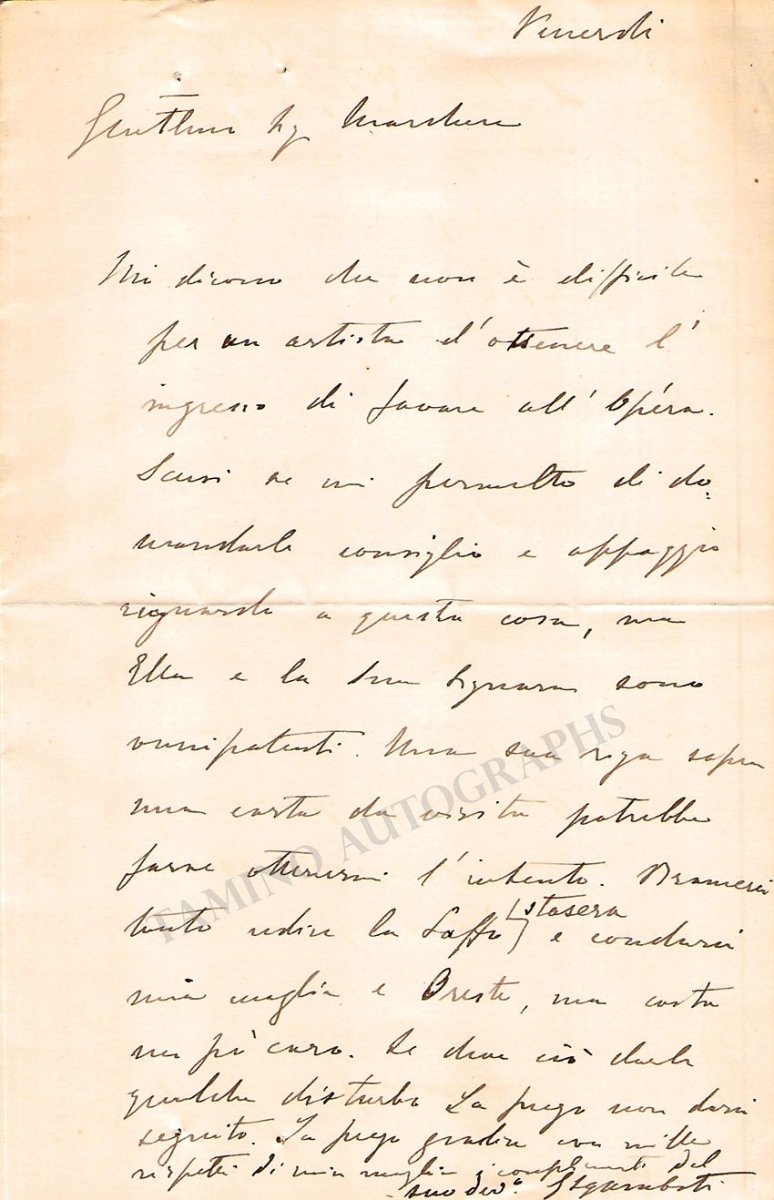 Venerdì
Gentilmo Sig Marchese
Mi dicono che non è difficile
per un artista d'ottenere l'
ingresso di favore all'Opéra.
Scusi se mi permetto di do=
mandarle consiglio e appoggio
riguardo a questa cosa, ma
Ella e la Sua Signora sono
onnipotenti. Una sua riga sopra
una carta da visita potrebbe
farmi ottenere l'intento. Bramerei
tanto udire la Saffo [stasera] e condurci
mia moglie e Oreste, ma costa
un pò caro. Se deve ciò darle
qualche disturbo La prego non darci
seguito. La prego gradire con mille
rispetti di mia moglie i complimenti del
suo dev.o GSgambati
TAMINO AUTOGRAPHS